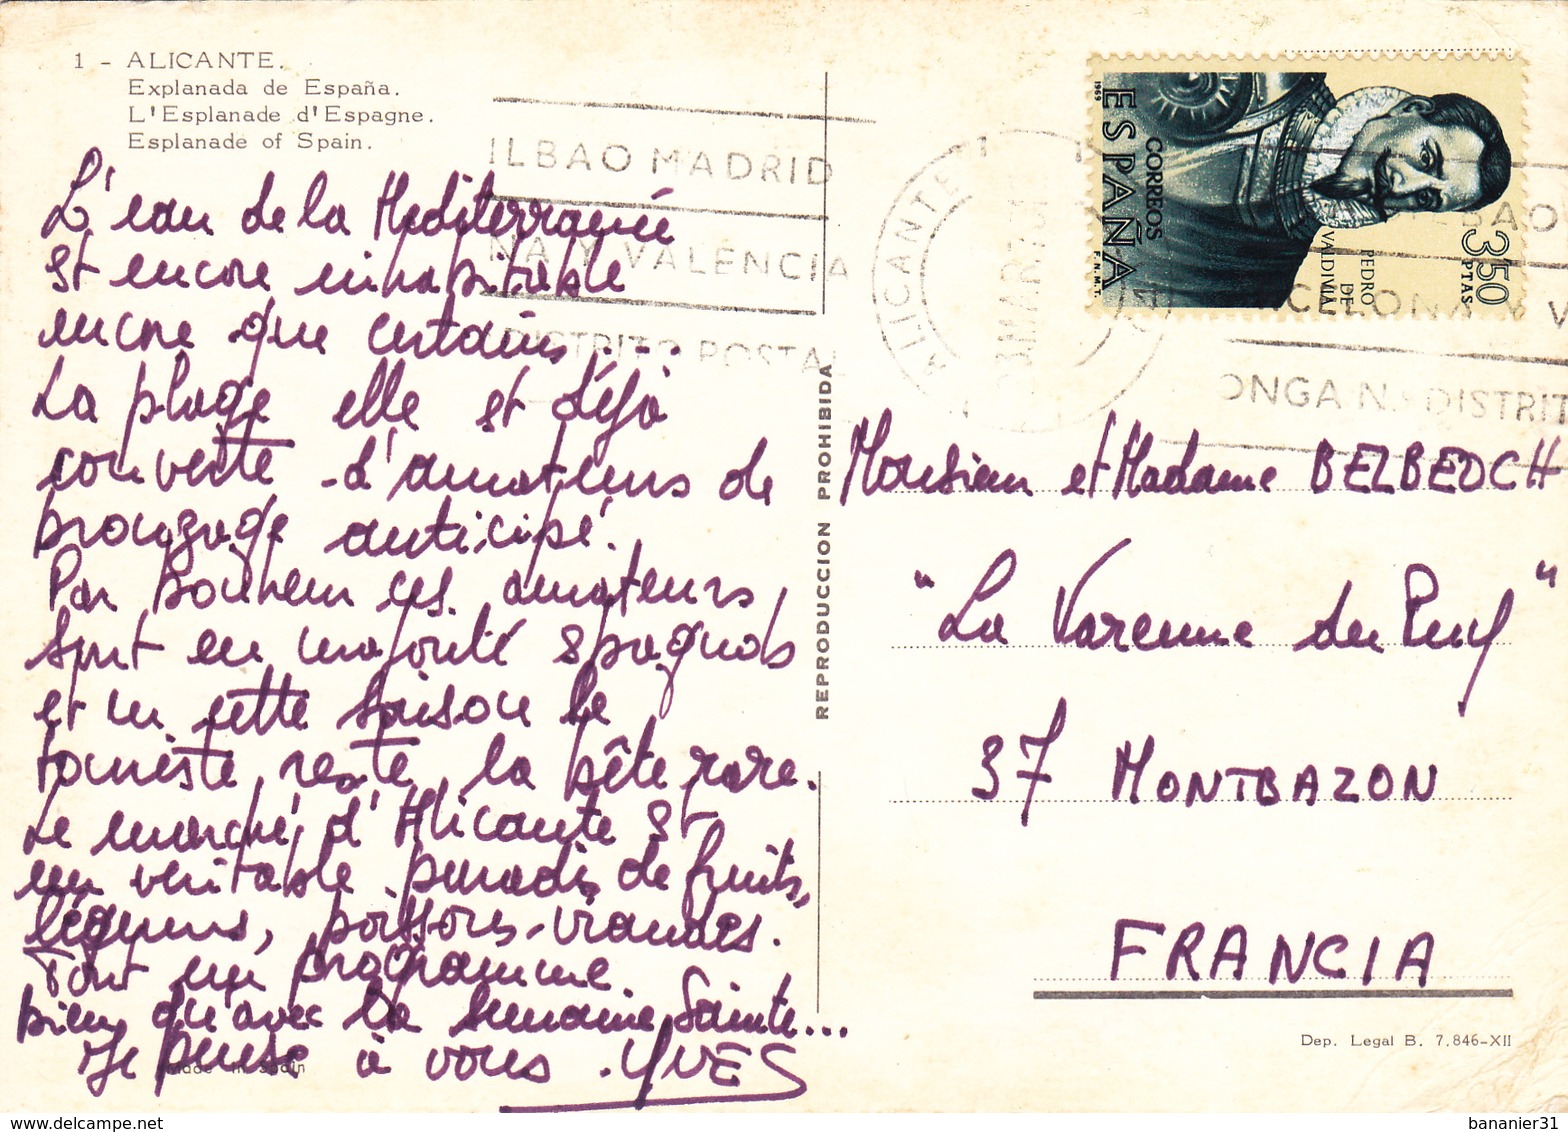 1 - ALICANTE.
Explanada de España.
L'Esplanade d'Espagne.
Esplanade of Spain.
ILBAO MADRID
NA Y VALENCIA
DISTRITO POSTAL
ALICANTE
1969
ESPAÑA
CORREOS
F.N.M.T.
PEDRO
DE
VALDIVIA
3'50
PTAS
BAO
RCELONA Y V
ONGA N.º DISTRIT
L'eau de la Méditerranée
est encore inhabitable
encore que certains...
La plage elle est déjà
couverte d'amateurs de
bronzage anticipé.
Par bonheur ces amateurs
sont en majorité espagnols
et en cette saison le
touriste reste la bête rare.
Le marché d'Alicante est
un véritable paradis de fruits,
légumes, poissons, viandes.
Tout un programme
bien qu'avec la Semaine Sainte...
Je pense à vous. YVES
REPRODUCCION PROHIBIDA
Monsieur et Madame BELBEOCH
"La Varenne du Puy"
37 MONTBAZON
FRANCIA
Dep. Legal B. 7.846-XII
Made in Spain
www.delcampe.net
bananier31